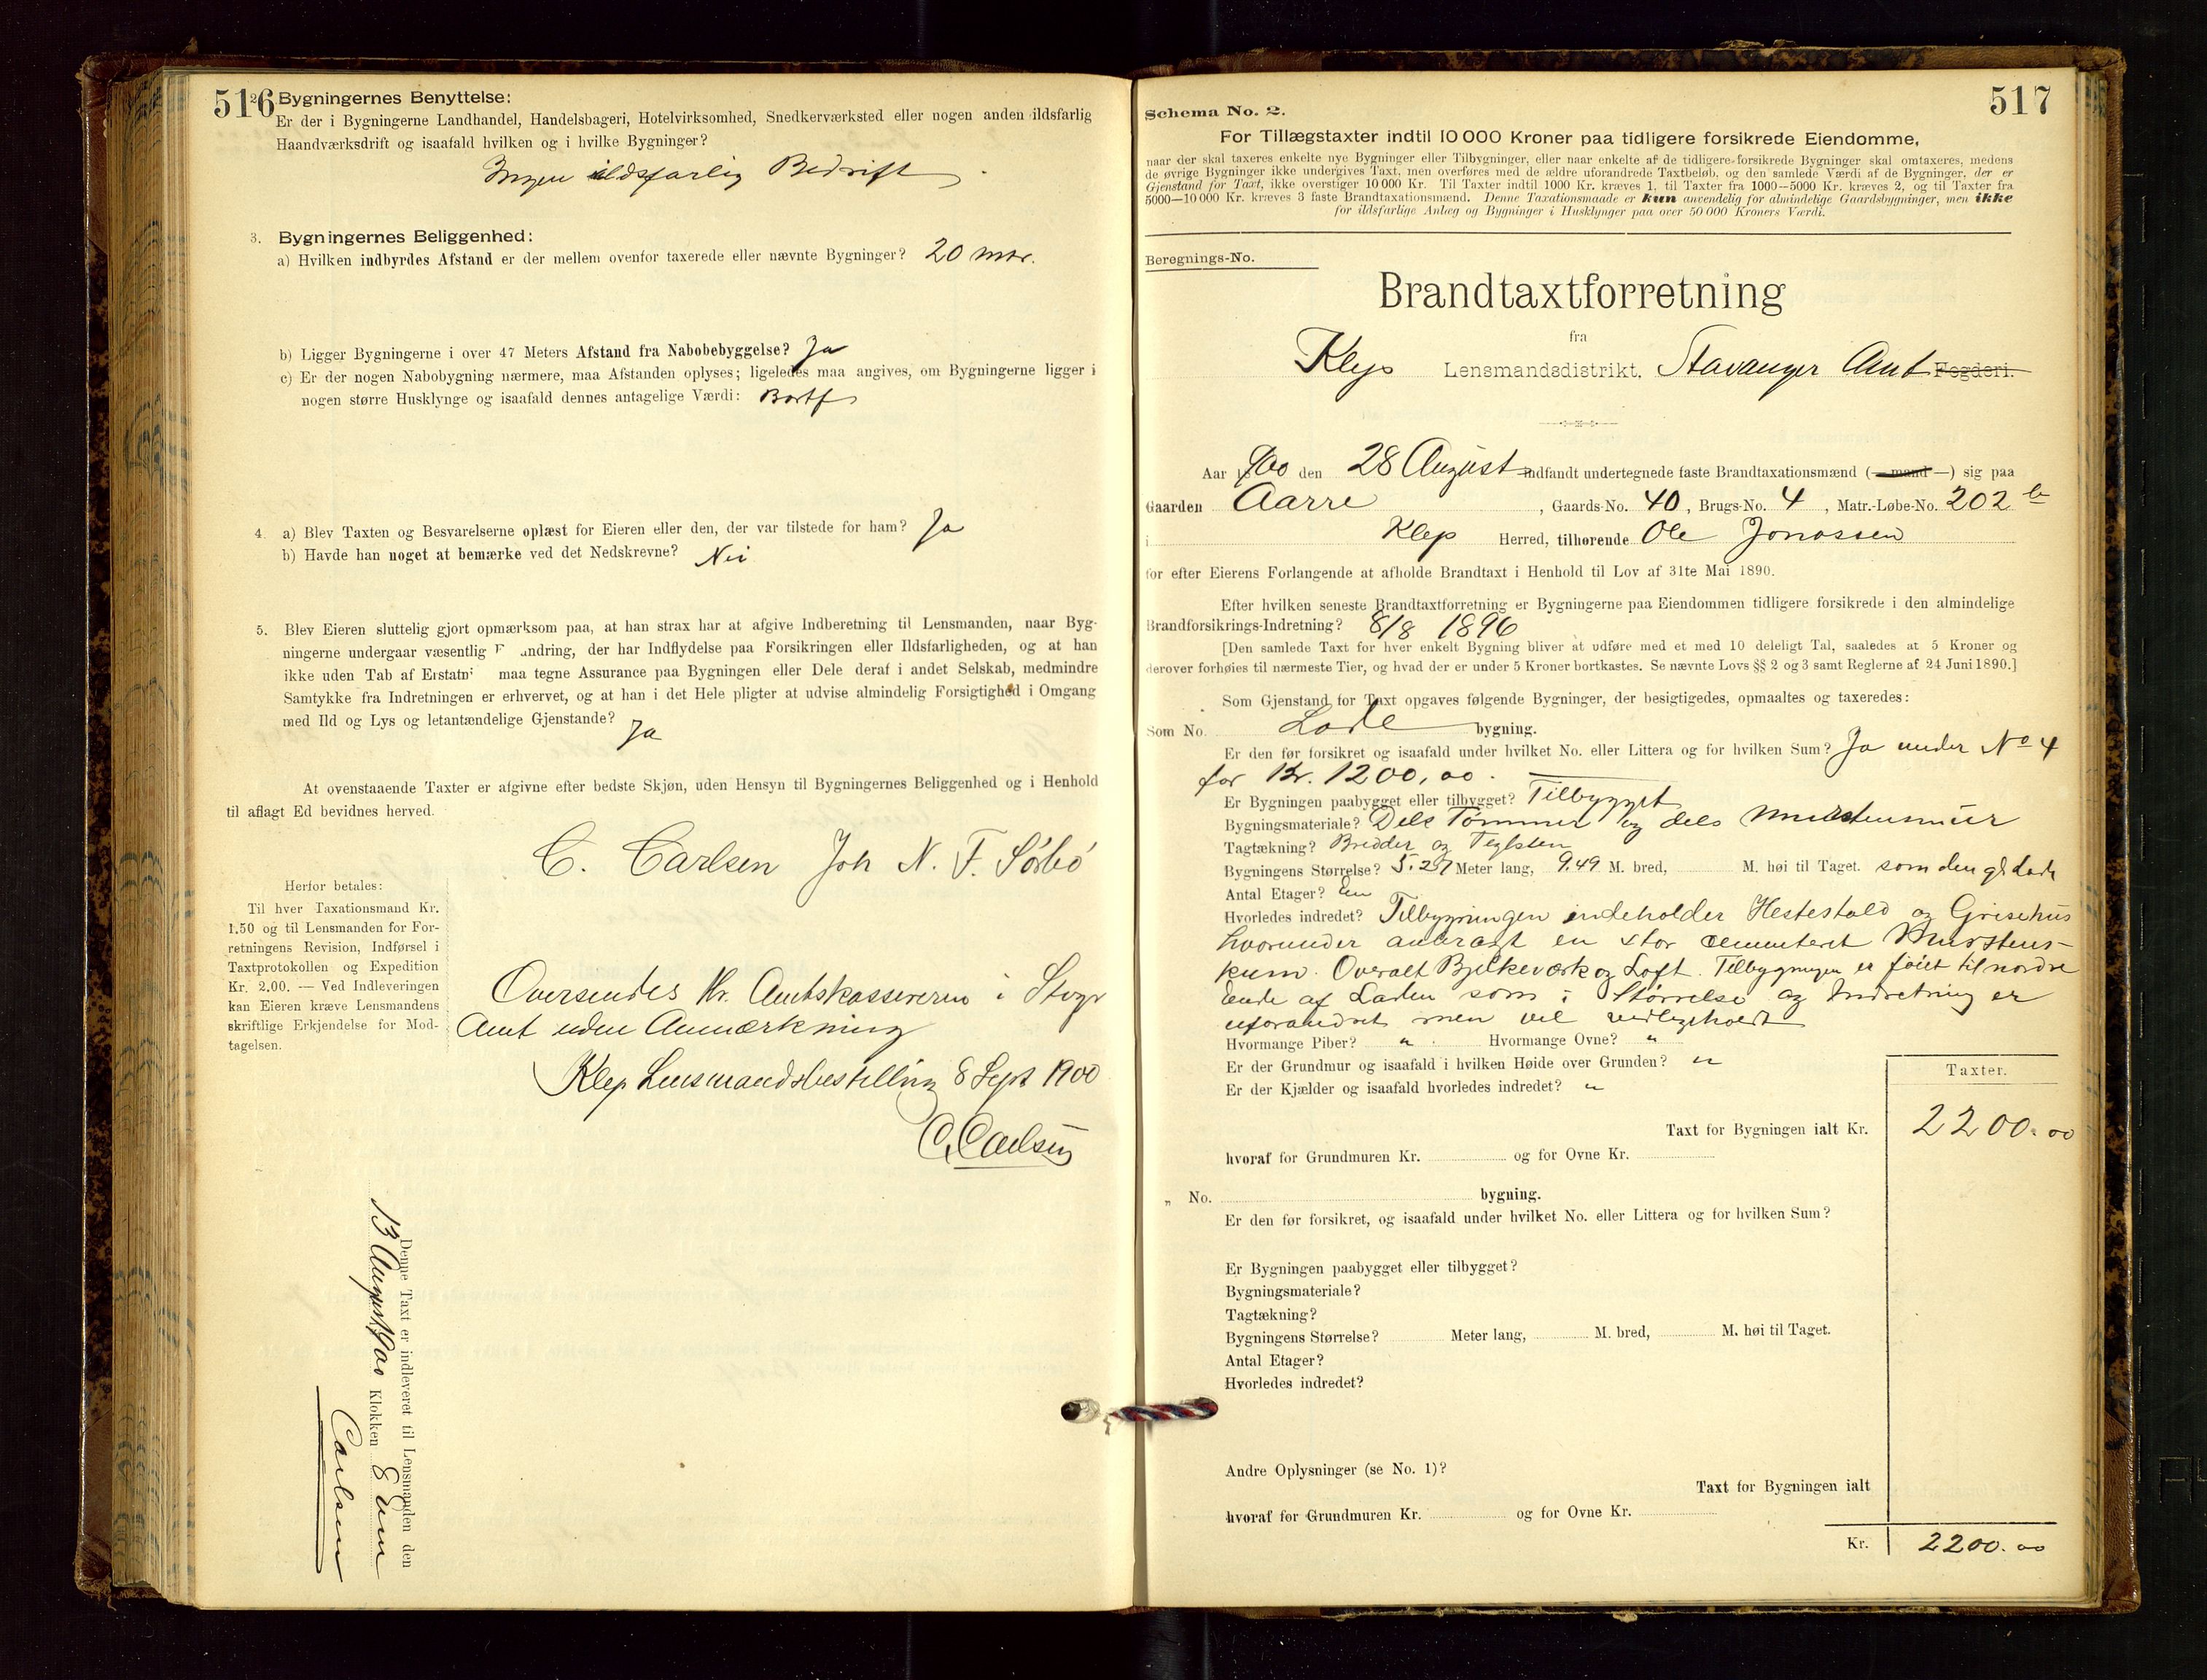 516
2. Bygningernes Benyttelse:
Er der i Bygningerne Landhandel, Handelsbageri, Hotelvirksomhed, Snedkerværksted eller nogen anden ildsfarlig
Haandværksdrift og isaafald hvilken og i hvilke Bygninger?
Ingen ildsfarlig Bedrift
3. Bygningernes Beliggenhed:
a) Hvilken indbyrdes Afstand er der mellem ovenfor taxerede eller nævnte Bygninger? 20 mtr.
b) Ligger Bygningerne i over 47 Meters Afstand fra Nabobebyggelse? Ja
c) Er der nogen Nabobygning nærmere, maa Afstanden oplyses; ligeledes maa angives, om Bygningerne ligger i
nogen større Husklynge og isaafald dennes antagelige Værdi: Bortf
4. a) Blev Taxten og Besvarelserne oplæst for Eieren eller den, der var tilstede for ham? Ja
b) Havde han noget at bemærke ved det Nedskrevne? Nei
5. Blev Eieren sluttelig gjort opmærksom paa, at han strax har at afgive Indberetning til Lensmanden, naar Byg-
ningerne undergaar væsentlig F andring, der har Indflydelse paa Forsikringen eller Ildsfarligheden, og at han
ikke uden Tab af Erstatn maa tegne Assurance paa Bygningen eller Dele deraf i andet Selskab, medmindre
Samtykke fra Indretningen er erhvervet, og at han i det Hele pligter at udvise almindelig Forsigtighed i Omgang
med Ild og Lys og letantændelige Gjenstande? Ja
At ovenstaaende Taxter er afgivne efter bedste Skjøn, uden Hensyn til Bygningernes Beliggenhed og i Henhold
til aflagt Ed bevidnes herved.
C. Carlsen Joh N. F. Sörbö
Herfor betales:
Til hver Taxationsmand Kr.
1.50 og til Lensmanden for For-
retningens Revision, Indførsel i
Taxtprotokollen og Expedition
Kr. 2.00. — Ved Indleveringen
kan Eieren kræve Lensmandens
skriftlige Erkjendelse for Mod-
tagelsen.
Oversendes Hr. Amtskassereren i Stvgr
Amt uden Anmærkning
Klep Lensmandsbestilling 8 Sept 1900
C. Carlsen
Denne Taxt er indleveret til Lensmanden den
13 August 1900 Klokken 8 Em
Carlsen
517
Schema No. 2.
For Tillægstaxter indtil 10 000 Kroner paa tidligere forsikrede Eiendomme,
naar der skal taxeres enkelte nye Bygninger eller Tilbygninger, eller naar enkelte af de tidligere forsikrede Bygninger skal omtaxeres, medens
de øvrige Bygninger ikke undergives Taxt, men overføres med de ældre uforandrede Taxtbeløb, og den samlede Værdi af de Bygninger, der er
Gjenstand for Taxt, ikke overstiger 10 000 Kr. Til Taxter indtil 1000 Kr. kræves 1, til Taxter fra 1000—5000 Kr. kræves 2, og til Taxter fra
5000—10 000 Kr. kræves 3 faste Brandtaxationsmænd. Denne Taxationsmaade er kun anvendelig for almindelige Gaardsbygninger, men ikke
for ildsfarlige Anlæg og Bygninger i Husklynger paa over 50 000 Kroners Værdi.
Beregnings-No.
Brandtaxtforretning
fra
Klep Lensmandsdistrikt, Stavanger Amt Fogderi.
Aar 1900 den 28 August indfandt undertegnede faste Brandtaxationsmænd (— mand —) sig paa
Gaarden Aarre, Gaards-No. 40, Brugs-No. 4, Matr.-Løbe-No. 202 b
i Klep Herred, tilhørende Ole Jonassen
for efter Eierens Forlangende at afholde Brandtaxt i Henhold til Lov af 31te Mai 1890.
Efter hvilken seneste Brandtaxtforretning er Bygningerne paa Eiendommen tidligere forsikrede i den almindelige
Brandforsikrings-Indretning? 8/8 1896
[Den samlede Taxt for hver enkelt Bygning bliver at udføre med et med 10 deleligt Tal, saaledes at 5 Kroner og
derover forhøies til nærmeste Tier, og hvad der er under 5 Kroner bortkastes. Se nævnte Lovs §§ 2 og 3 samt Reglerne af 24 Juni 1890.]
Som Gjenstand for Taxt opgaves følgende Bygninger, der besigtigedes, opmaaltes og taxeredes:
Som No. Lade bygning.
Er den før forsikret og isaafald under hvilket No. eller Littera og for hvilken Sum? Ja under No 4
for Kr. 1200,00.
Er Bygningen paabygget eller tilbygget? Tilbygget
Bygningsmateriale? Dels Tömmer og dels Murstensmur
Tagtækning? Bredder og Teglsten
Bygningens Størrelse? 5.27 Meter lang, 9.49 M. bred, M. høi til Taget. som den gl Lade
Antal Etager? En
Hvorledes indredet? Tilbygningen indeholder Hestestald og Grisehus
hvorunder anbragt en stor cementeret Murstens-
kum. Overalt Bjelkeværk og Loft. Tilbygningen er föiet til nordre
Ende af Laden som i Störrelse og Indretning er
uforandret men vel vedligeholdt
Hvormange Piber? " Hvormange Ovne? "
Er der Grundmur og isaafald i hvilken Høide over Grunden? "
Er der Kjælder og isaafald hvorledes indredet? "
Taxter.
Taxt for Bygningen ialt Kr. 2200.00
hvoraf for Grundmuren Kr. og for Ovne Kr.
„ No. bygning.
Er den før forsikret, og isaafald under hvilket No. eller Littera og for hvilken Sum?
Er Bygningen paabygget eller tilbygget?
Bygningsmateriale?
Tagtækning?
Bygningens Størrelse? Meter lang, M. bred, M. høi til Taget.
Antal Etager?
Hvorledes indredet?
Andre Oplysninger (se No. 1)?
Taxt for Bygningen ialt
hvoraf for Grundmuren Kr. og for Ovne Kr.
Kr. 2200.00